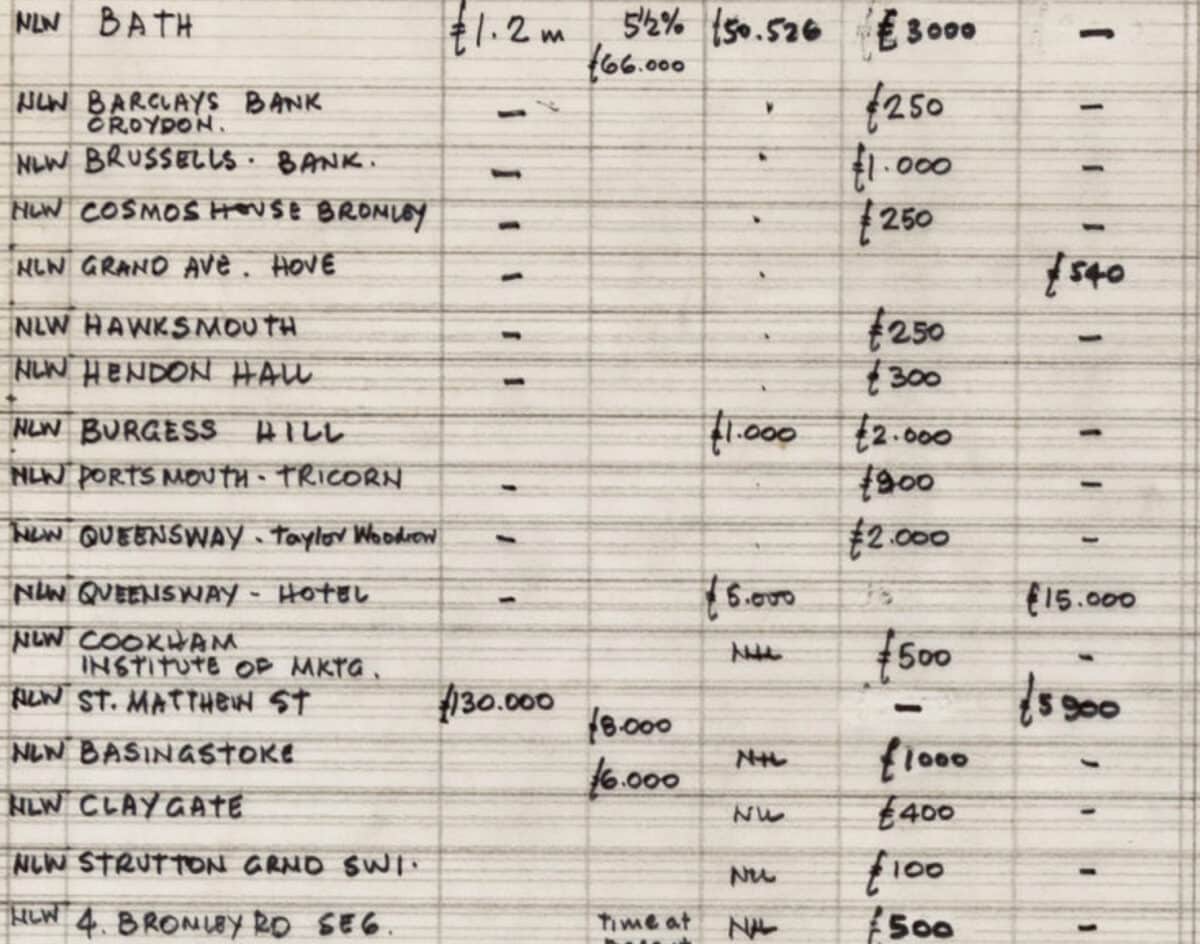 NLW BATH £1.2 m 5½% £50.526 £3000 —
£66.000
NLW BARCLAYS BANK — £250 —
CROYDON.
NLW BRUSSELLS. BANK. — £1.000 —
NLW COSMOS HOUSE BROMLEY — £250 —
NLW GRAND AVE. HOVE — £540
NLW HAWKSMOUTH — £250 —
NLW HENDON HALL — £300
NLW BURGESS HILL £1.000 £2.000 —
NLW PORTSMOUTH - TRICORN — £900 —
NLW QUEENSWAY. Taylor Woodrow — £2.000 —
NLW QUEENSWAY - HOTEL — £5.000 £15.000
NLW COOKHAM NIL £500 —
INSTITUTE OF MKTG.
NLW ST. MATTHEW ST £130.000 — £5900
£8.000
NLW BASINGSTOKE NIL £1000 —
£6.000
NLW CLAYGATE NIL £400 —
NLW STRUTTON GRND SW1. NIL £100 —
NLW 4. BROMLEY RD SE6. Time at NIL £500 —